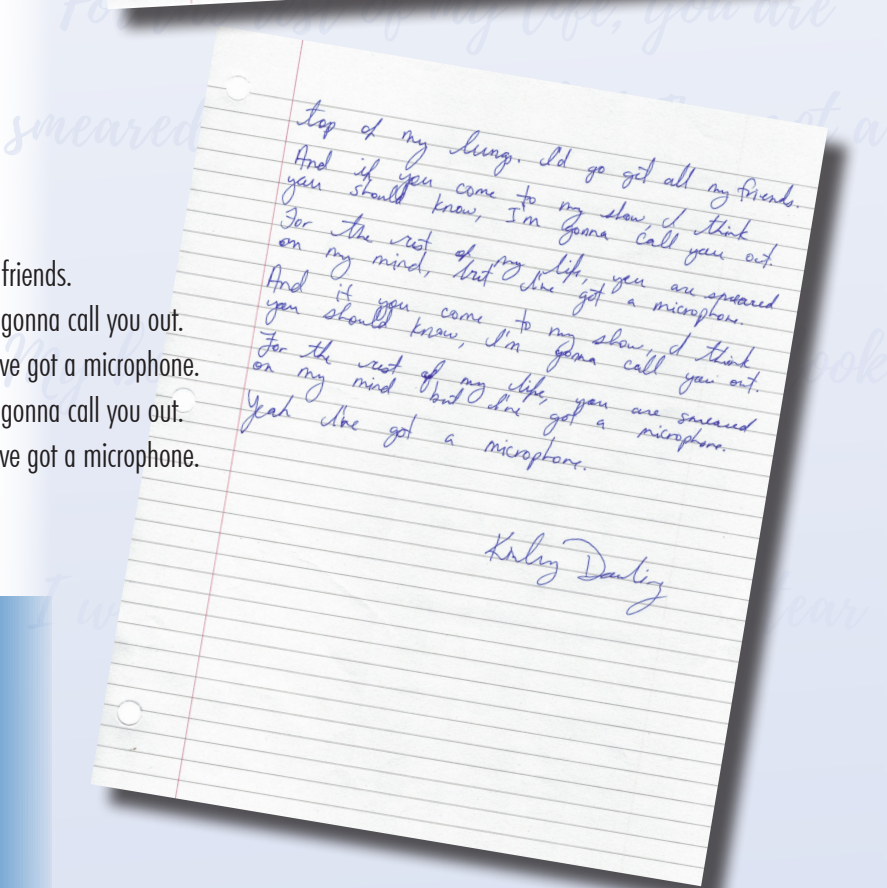 For the rest of my life, you are
smeared
a
friends.
gonna call you out.
ve got a microphone.
gonna call you out.
ve got a microphone.
top of my lung. I'd go get all my friends.
And if you come to my show, I think
you should know, I'm gonna call you out.
For the rest of my life, you are smeared
on my mind, but I've got a microphone.
And if you come to my show, I think
you should know, I'm gonna call you out.
For the rest of my life, you are smeared
on my mind but I've got a microphone.
Yeah I've got a microphone.
Darling
My
ook
I w
ear